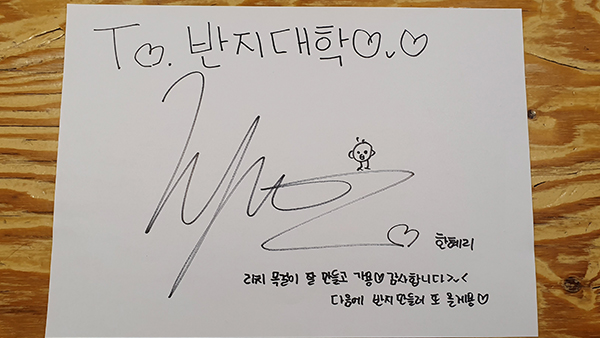 To. 반지대학♡.♡
한혜리
리지 목걸이 잘 만들고 가용♡ 감사합니다>.<
다음에 반지 만들러 또 올게용♡